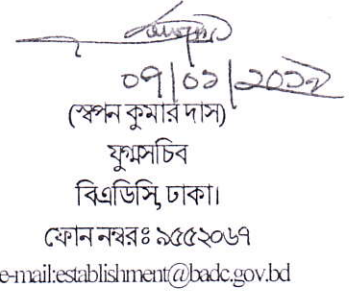 ০৭/০১/২০১৮
(স্বপন কুমার দাস)
যুগ্মসচিব
বিএডিসি, ঢাকা।
ফোন নম্বরঃ ৯৫৫২০৬৭
e-mail:establishment@badc.gov.bd